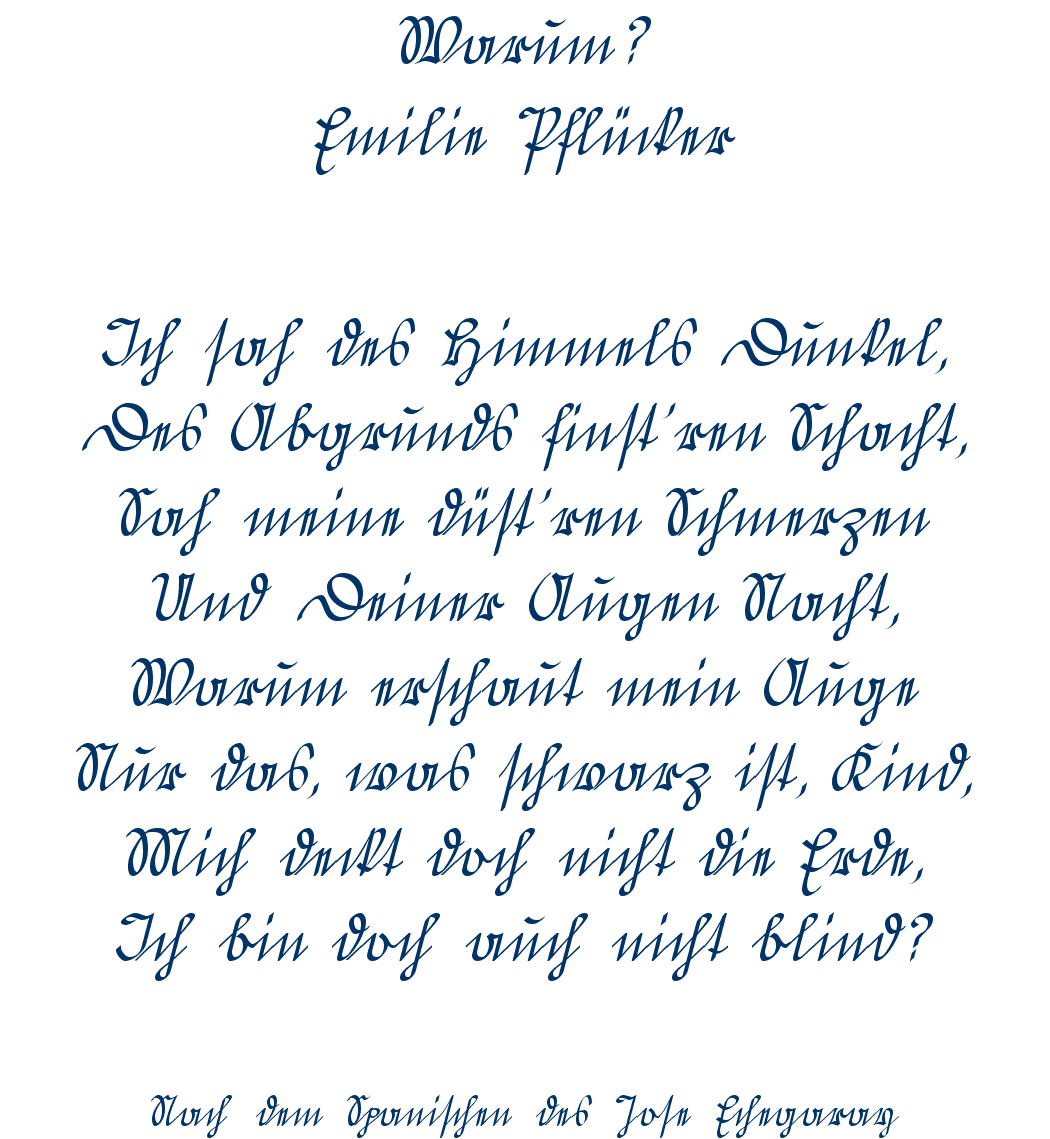 Warum?
Emilie Pflücker
Ich sah des Himmels Dunkel,
Des Abgrunds finst'ren Schacht,
Sah meine düst'ren Schmerzen
Und Deiner Augen Nacht,
Warum erschaut mein Auge
Nur das, was schwarz ist, Kind,
Mich deckt doch nicht die Erde,
Ich bin doch auch nicht blind?
Nach dem Spanischen des Jose Echegaray